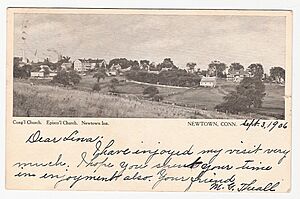 Cong'l Church. Episco'l Church. Newtown Inn.
NEWTOWN, CONN. Sept 3, 1906
Dear Lina;
I have enjoyed my visit very
much. I hope you spent your time
in enjoyment also. Your friend
M. G. Theall